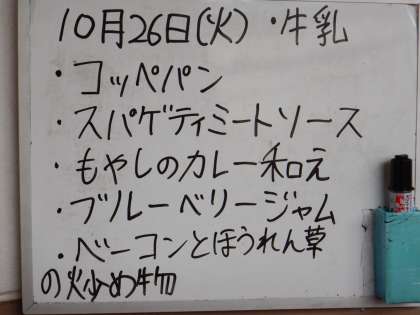 10月26日(火)・牛乳
・コッペパン
・スパゲティミートソース
・もやしのカレー和え
・ブルーベリージャム
・ベーコンとほうれん草
の炒め物